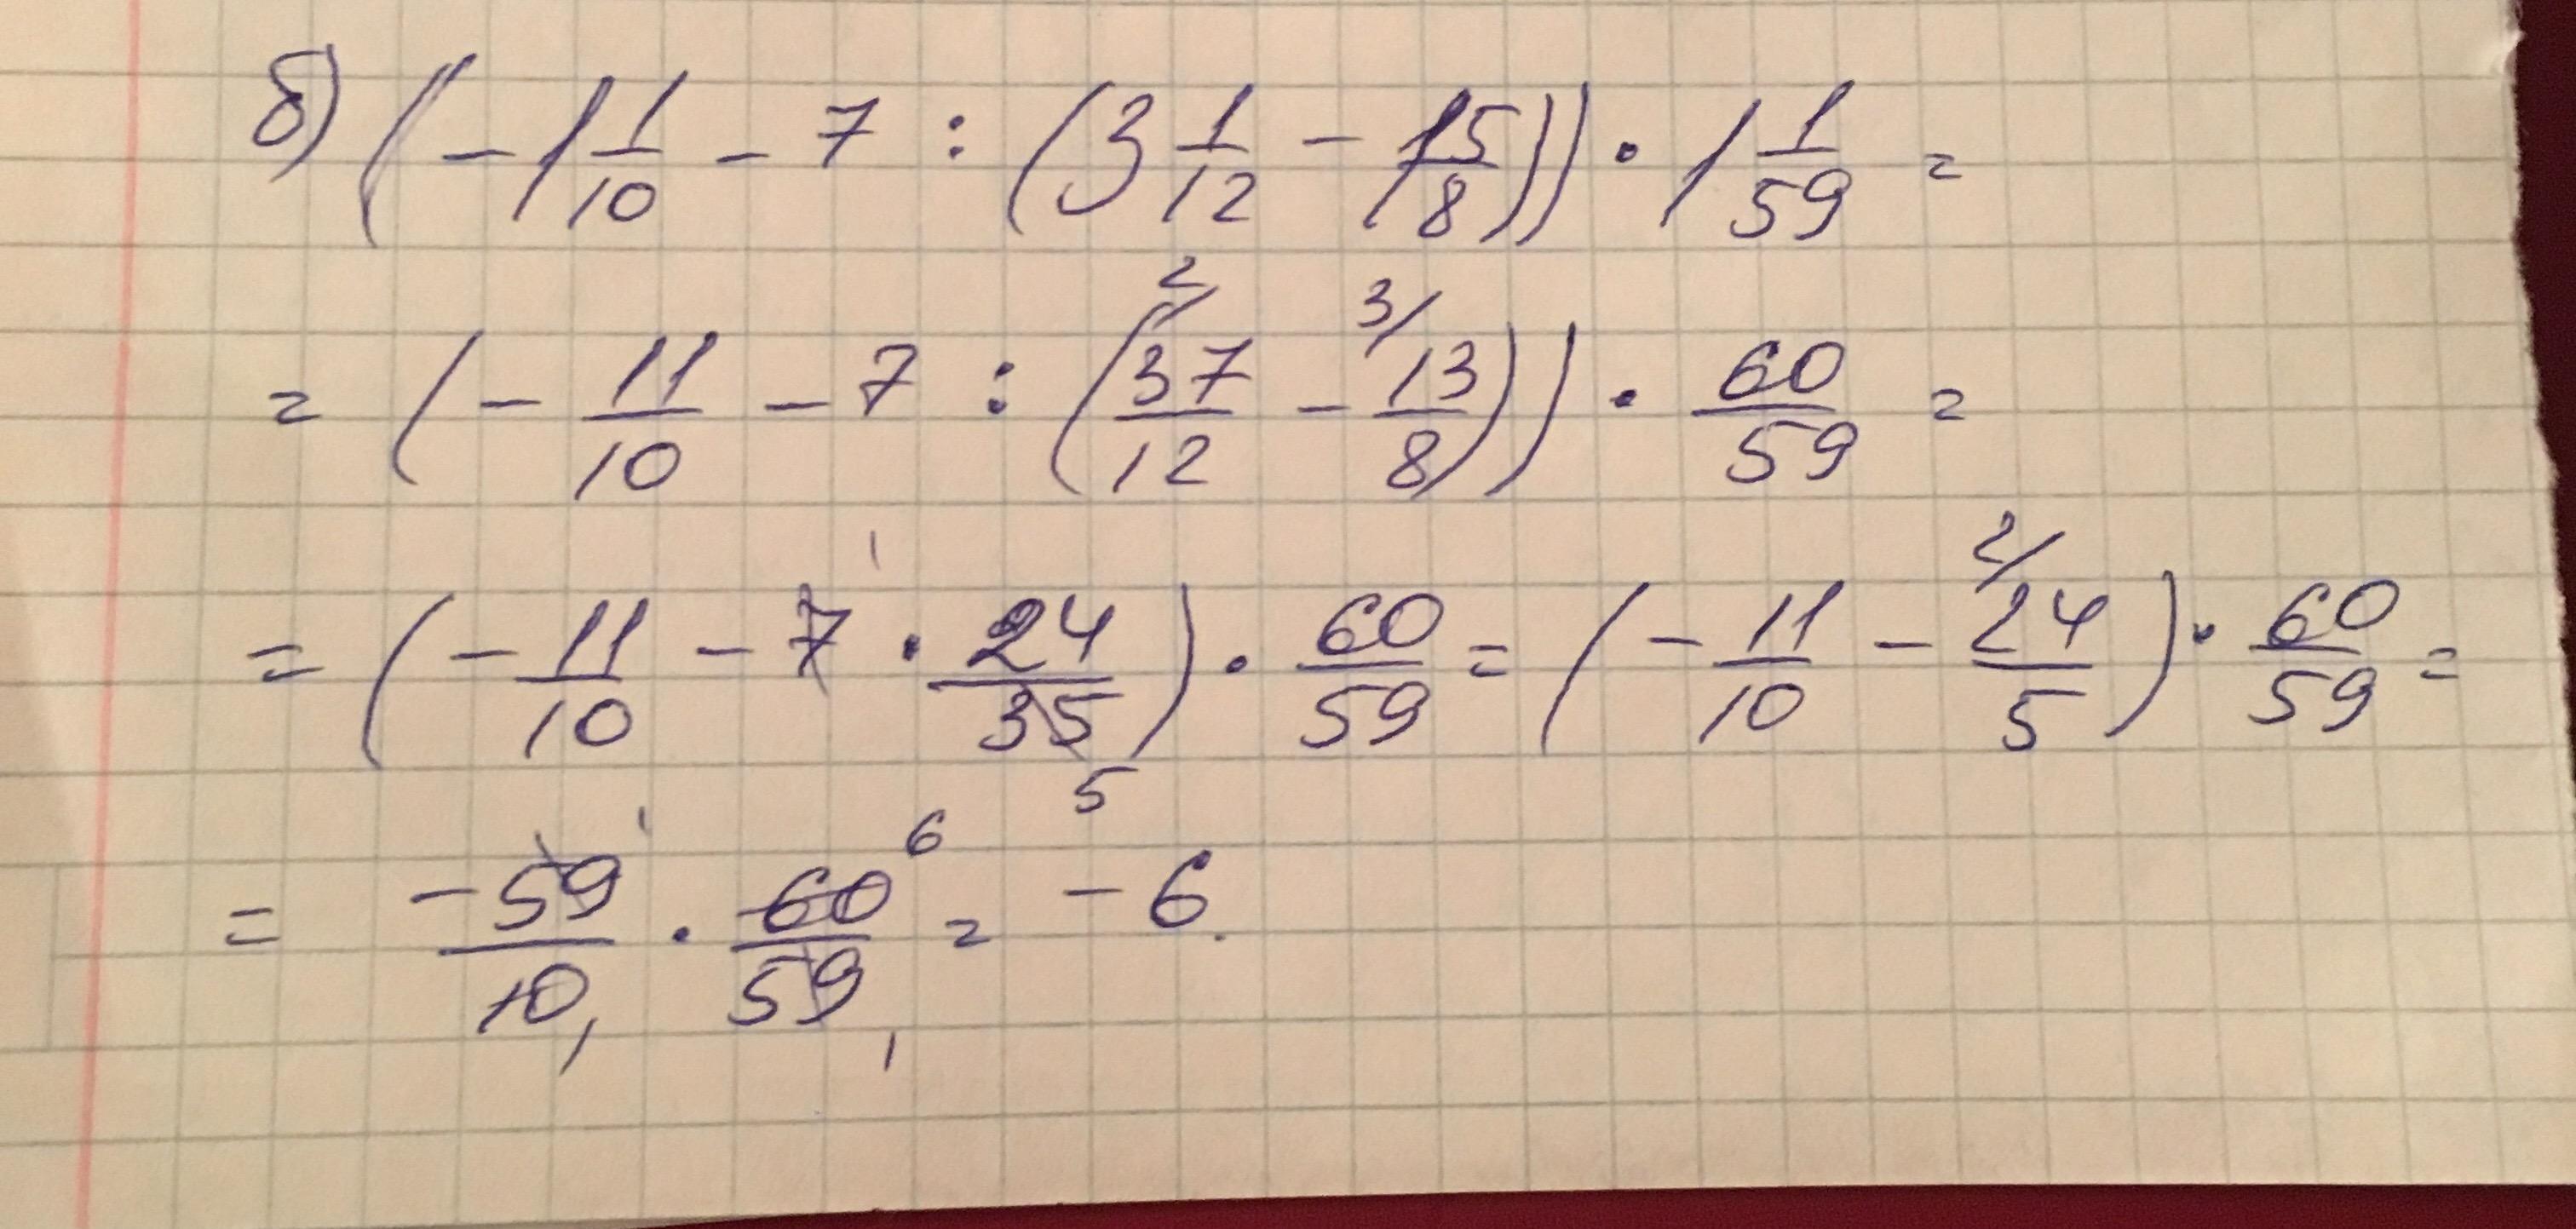 б) (-1 1/10 - 7 : (3 1/12 - 1 5/8)) · 1 1/59 =
= (- 11/10 - 7 : (²/ 37/12 - ³/ 13/8)) · 60/59 =
= (- 11/10 - 7¹ · 24/35₅) · 60/59 = (- 11/10 - ²/ 24/5) · 60/59 =
= -59¹/10₁ · 60⁶/59₁ = -6.